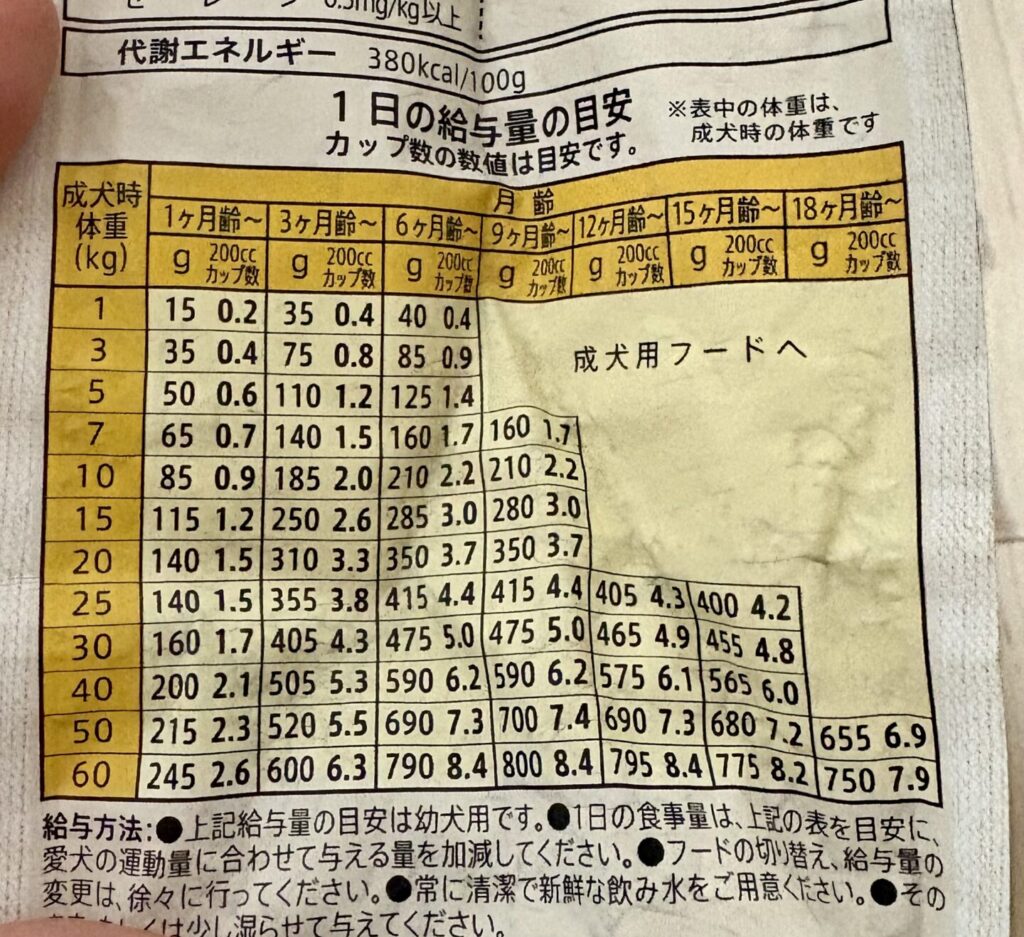 0.5mg/kg以上
代謝エネルギー 380kcal/100g
1日の給与量の目安
カップ数の数値は目安です。
※表中の体重は、
成犬時の体重です
成犬時体重(kg) 月齢
1ヶ月齢～ 3ヶ月齢～ 6ヶ月齢～ 9ヶ月齢～ 12ヶ月齢～ 15ヶ月齢～ 18ヶ月齢～
g 200ccカップ数 g 200ccカップ数 g 200ccカップ数 g 200ccカップ数 g 200ccカップ数 g 200ccカップ数 g 200ccカップ数
1 15 0.2 35 0.4 40 0.4
3 35 0.4 75 0.8 85 0.9 成犬用フードへ
5 50 0.6 110 1.2 125 1.4
7 65 0.7 140 1.5 160 1.7 160 1.7
10 85 0.9 185 2.0 210 2.2 210 2.2
15 115 1.2 250 2.6 285 3.0 280 3.0
20 140 1.5 310 3.3 350 3.7 350 3.7
25 140 1.5 355 3.8 415 4.4 415 4.4 405 4.3 400 4.2
30 160 1.7 405 4.3 475 5.0 475 5.0 465 4.9 455 4.8
40 200 2.1 505 5.3 590 6.2 590 6.2 575 6.1 565 6.0
50 215 2.3 520 5.5 690 7.3 700 7.4 690 7.3 680 7.2 655 6.9
60 245 2.6 600 6.3 790 8.4 800 8.4 795 8.4 775 8.2 750 7.9
給与方法:●上記給与量の目安は幼犬用です。●1日の食事量は、上記の表を目安に、
愛犬の運動量に合わせて与える量を加減してください。●フードの切り替え、給与量の
変更は、徐々に行ってください。●常に清潔で新鮮な飲み水をご用意ください。●その
は少し湿らせて与えてください。